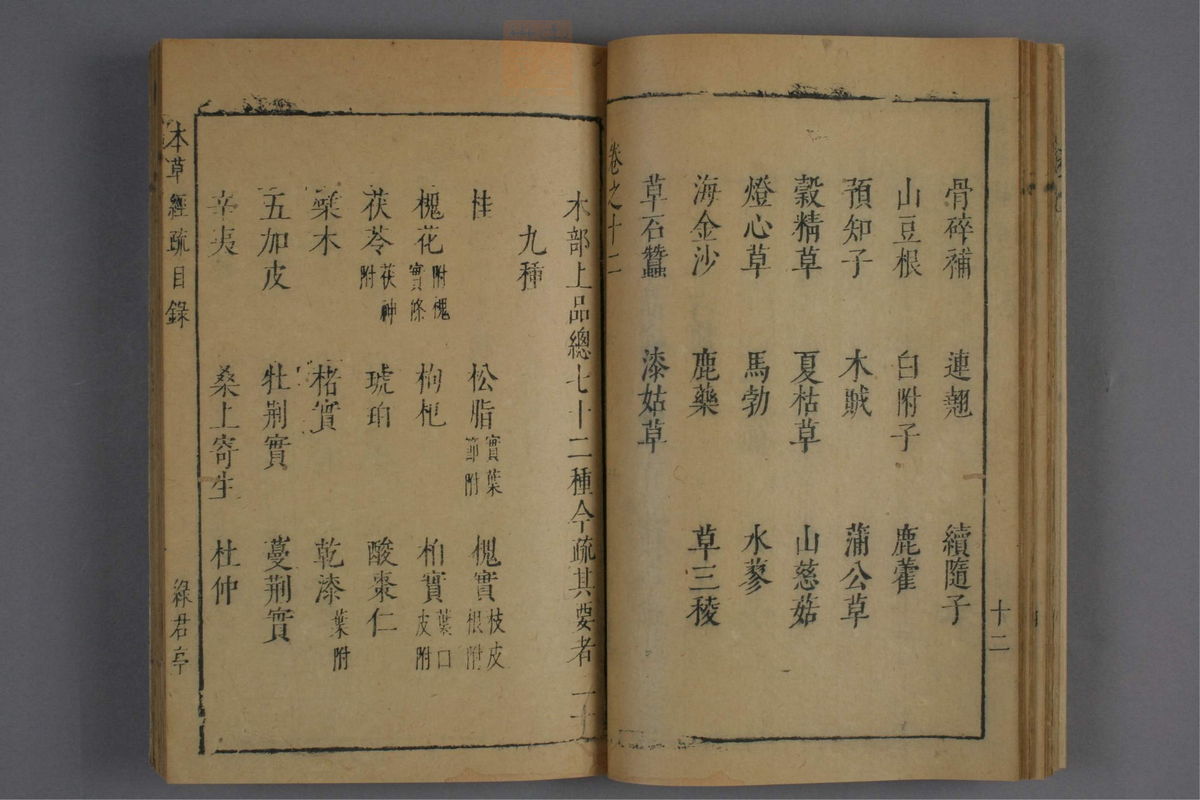 骨碎補 連翹 續隨子
山豆根 白附子 鹿藿
預知子 木賊 蒲公草
穀精草 夏枯草 山慈菇
燈心草 馬勃 水蓼
海金沙 鹿藥 草三稜
草石蠶 漆姑草
卷之十二
十二
木部上品總七十二種今疏其要者二十
九種
桂 松脂實葉節附 槐實枝皮根附
槐花附槐實條 枸杞 柏實葉皮附
茯苓茯神附 琥珀 酸棗仁
楮實 乾漆葉附
五加皮 牡荆實 蔓荆實
辛夷 桑上寄生 杜仲
本草經疏目錄
綠君亭